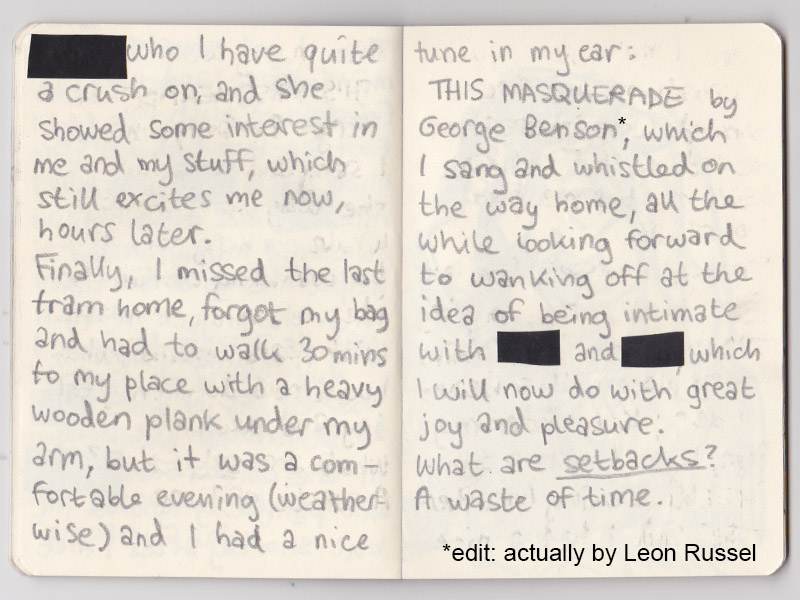 who I have quite
a crush on, and she
showed some interest in
me and my stuff, which
still excites me now,
hours later.
Finally, I missed the last
tram home, forgot my bag
and had to walk 30 mins
to my place with a heavy
wooden plank under my
arm, but it was a com-
fortable evening (weather-
wise) and I had a nice
tune in my ear:
THIS MASQUERADE by
George Benson*, which
I sang and whistled on
the way home, all the
while looking forward
to wanking off at the
idea of being intimate
with and , which
I will now do with great
joy and pleasure.
What are setbacks?
A waste of time.
*edit: actually by Leon Russel